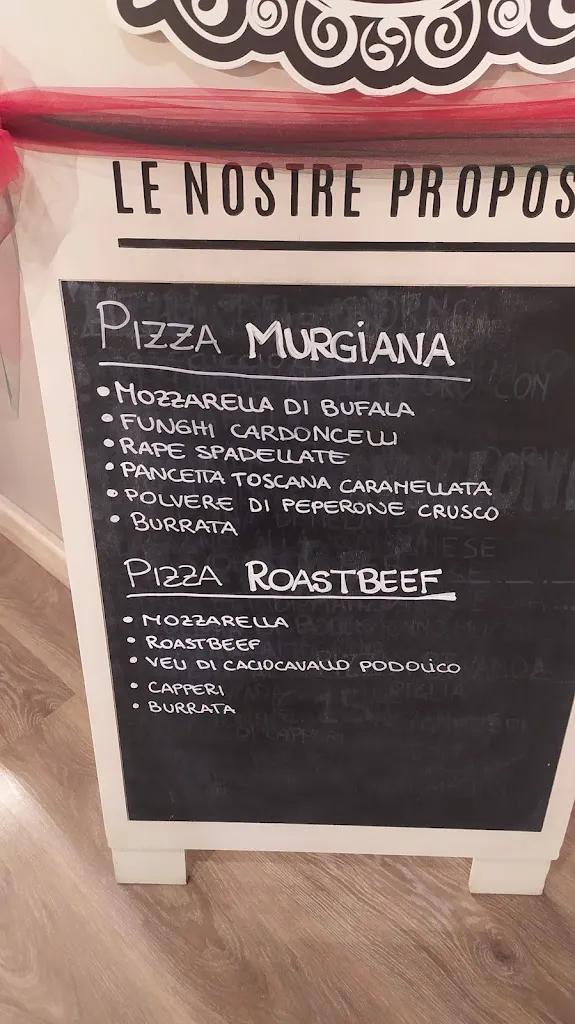 LE NOSTRE PROPOS
PIZZA MURGIANA
• MOZZARELLA DI BUFALA
• FUNGHI CARDONCELLI
• RAPE SPADELLATE
• PANCETTA TOSCANA CARAMELLATA
• POLVERE DI PEPERONE CRUSCO
• BURRATA
PIZZA ROASTBEEF
• MOZZARELLA
• ROASTBEEF
• VELI DI CACIOCAVALLO PODOLICO
• CAPPERI
• BURRATA